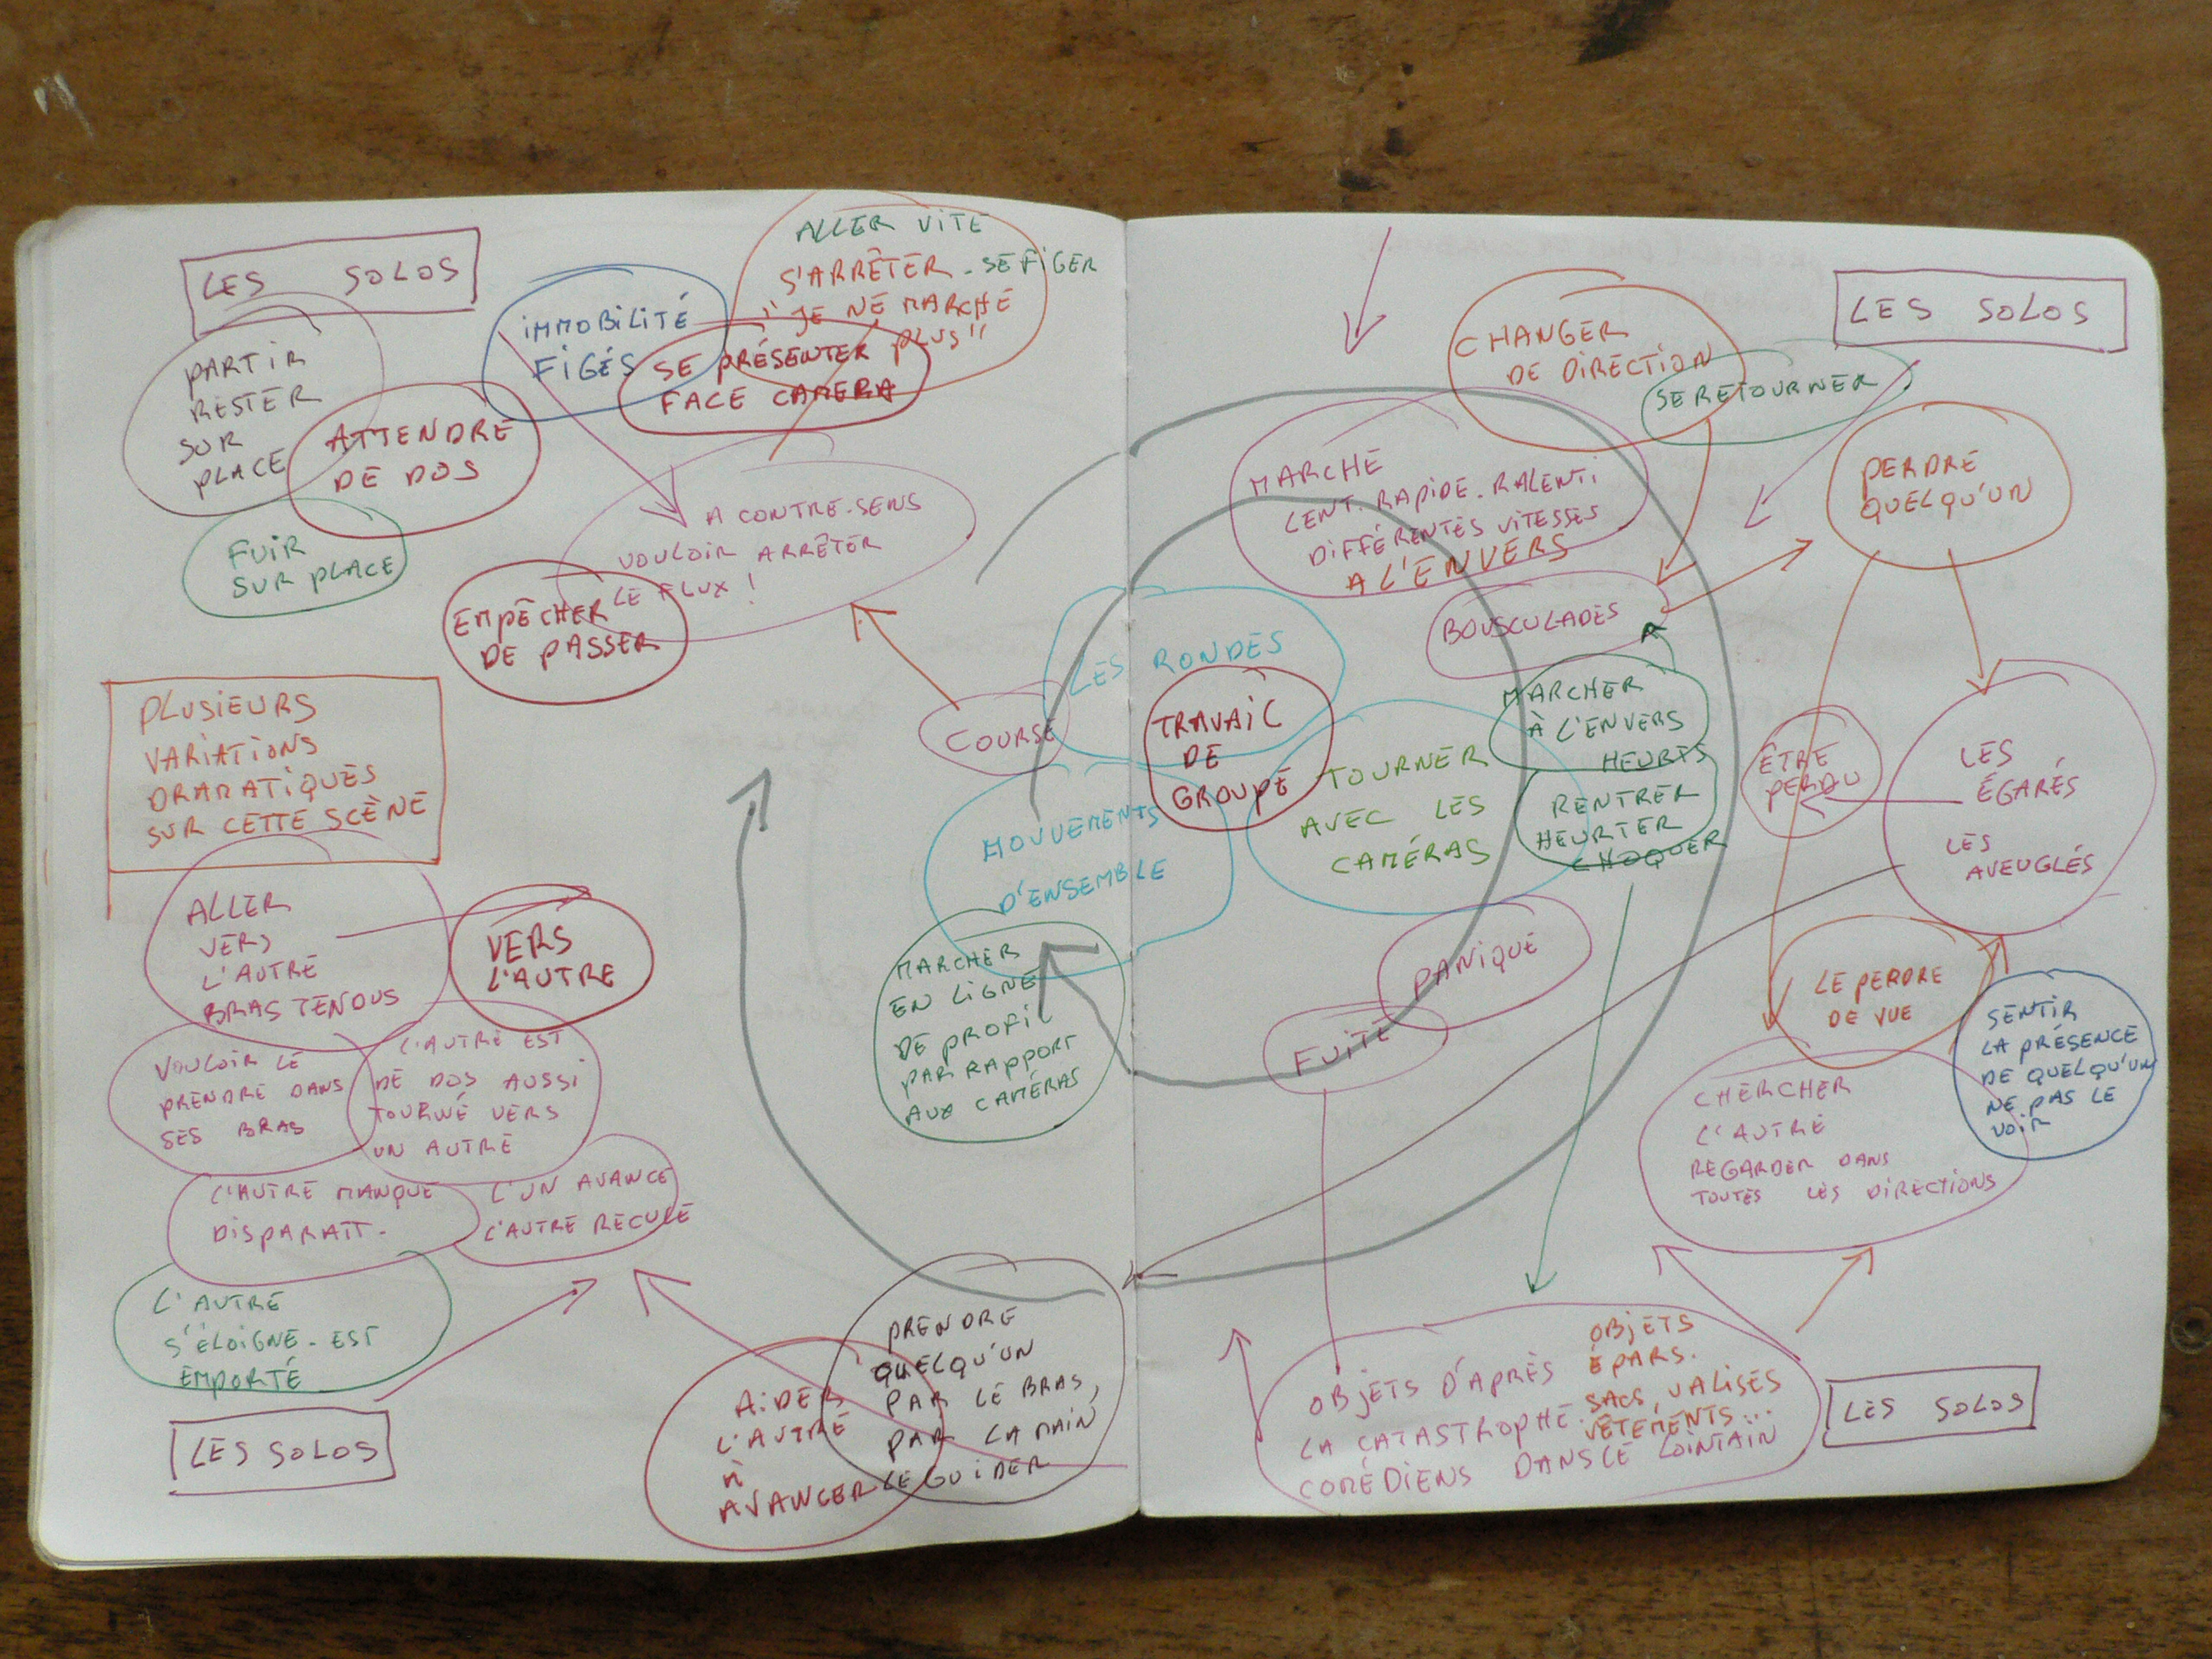 LES SOLOS
PARTIR
RESTER
SUR
PLACE
ATTENDRE
DE DOS
FUIR
SUR PLACE
IMMOBILITÉ
FIGÉS
ALLER VITE
S'ARRÊTER - SE FIGER
"JE NE MARCHE
PLUS"
SE PRÉSENTER
FACE CAMERA
A CONTRE-SENS
VOULOIR ARRÊTER
LE FLUX !
EMPÊCHER
DE PASSER
COURSE
PLUSIEURS
VARIATIONS
DRAMATIQUES
SUR CETTE SCÈNE
ALLER
VERS
L'AUTRE
BRAS TENDUS
VERS
L'AUTRE
VOULOIR LE
PRENDRE DANS
SES BRAS
L'AUTRE EST
DE DOS AUSSI
TOURNÉ VERS
UN AUTRE
L'AUTRE MANQUE
DISPARAIT.
L'UN AVANCE
L'AUTRE RECULE
L'AUTRE
S'ÉLOIGNE - EST
EMPORTÉ
LES SOLOS
AIDER
L'AUTRE
À
AVANCER
PRENDRE
QUELQU'UN
PAR LE BRAS,
PAR LA MAIN
LE GUIDER
LES RONDES
TRAVAIL
DE
GROUPE
MOUVEMENTS
D'ENSEMBLE
MARCHER
EN LIGNE
DE PROFIL
PAR RAPPORT
AUX CAMÉRAS
TOURNER
AVEC LES
CAMÉRAS
LES SOLOS
CHANGER
DE DIRECTION
SE RETOURNER
MARCHE
LENT. RAPIDE. RALENTI
DIFFÉRENTES VITESSES
A L'ENVERS
BOUSCULADES
MARCHER
À L'ENVERS
HEURTS
RENTRER
HEURTER
CHOQUER
PERDRE
QUELQU'UN
ÊTRE
PERDU
LES
ÉGARÉS
LES
AVEUGLÉS
PANIQUE
FUITE
LE PERDRE
DE VUE
SENTIR
LA PRÉSENCE
DE QUELQU'UN
NE PAS LE
VOIR
CHERCHER
L'AUTRE
REGARDER DANS
TOUTES LES DIRECTIONS
OBJETS D'APRÈS
LA CATASTROPHE.
OBJETS
ÉPARS.
SACS, VALISES
VÊTEMENTS...
COMÉDIENS DANS LE LOINTAIN
LES SOLOS